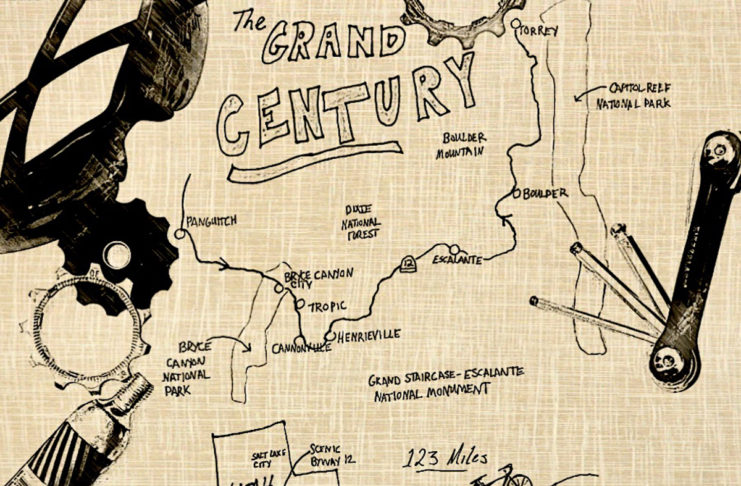 The
GRAND
CENTURY
TORREY
CAPITOL REEF
NATIONAL PARK
BOULDER
MOUNTAIN
BOULDER
DIXIE
NATIONAL
FOREST
PANGUITCH
12
ESCALANTE
BRYCE CANYON
CITY
TROPIC
HENRIEVILLE
CANNONVILLE
BRYCE
CANYON
NATIONAL
PARK
GRAND STAIRCASE-ESCALANTE
NATIONAL MONUMENT
SALT LAKE
CITY
SCENIC
BYWAY 12
UTAH
123 Miles